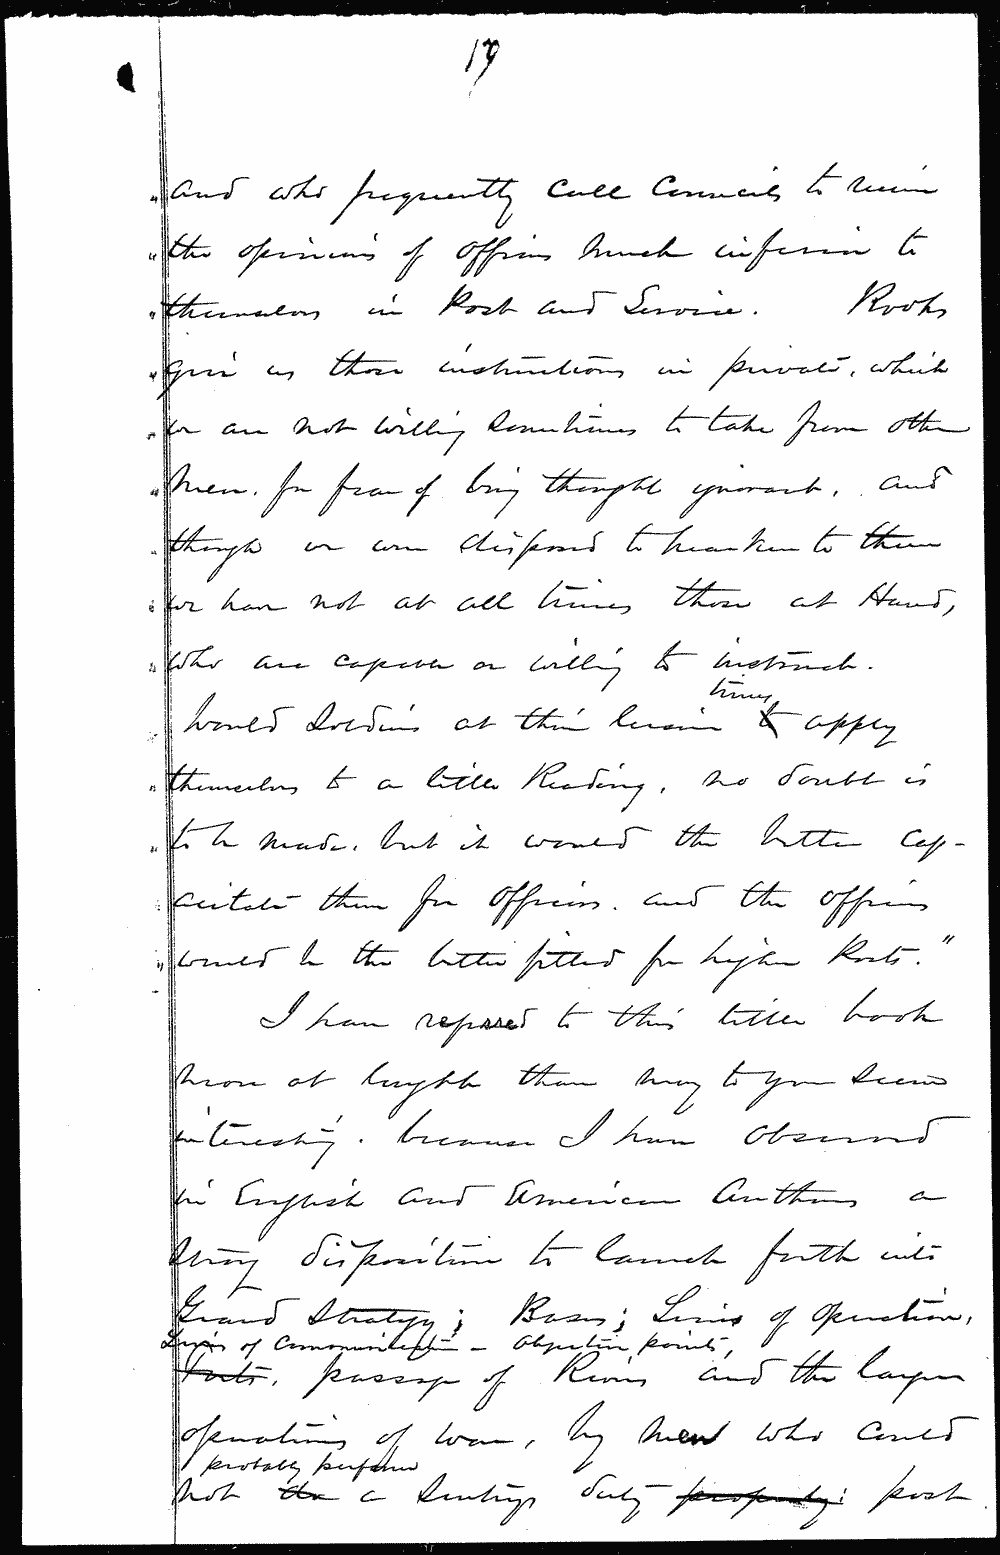 19
"and who frequently call Councils to receive
"the opinions of officers much inferior to
"themselves in Post and Service. Books
"give us those instructions in private, which
"we are not willing sometimes to take from other
"men, for fear of being thought ignorant, and
"though we were disposed to hearken to them
"we have not at all times those at Hand,
"who are capable or willing to instruct.
"Would Soldiers at their leisure times apply
"themselves to a little Reading, no doubt is
"to be made, but it would the better cap-
"acitate them for Officers, and the officers
"would be the better fitted for higher Posts."
I have referred to this little book
more at length than may to you seem
interesting, because I have observed
in English and American Authors a
strong disposition to launch forth into
Grand Strategy; Bases; Lines of operation,
Lines of Communication - objective points,
passage of Rivers and the larger
operations of war, by men who could
probably perform
not do a Sentry's duty properly; post